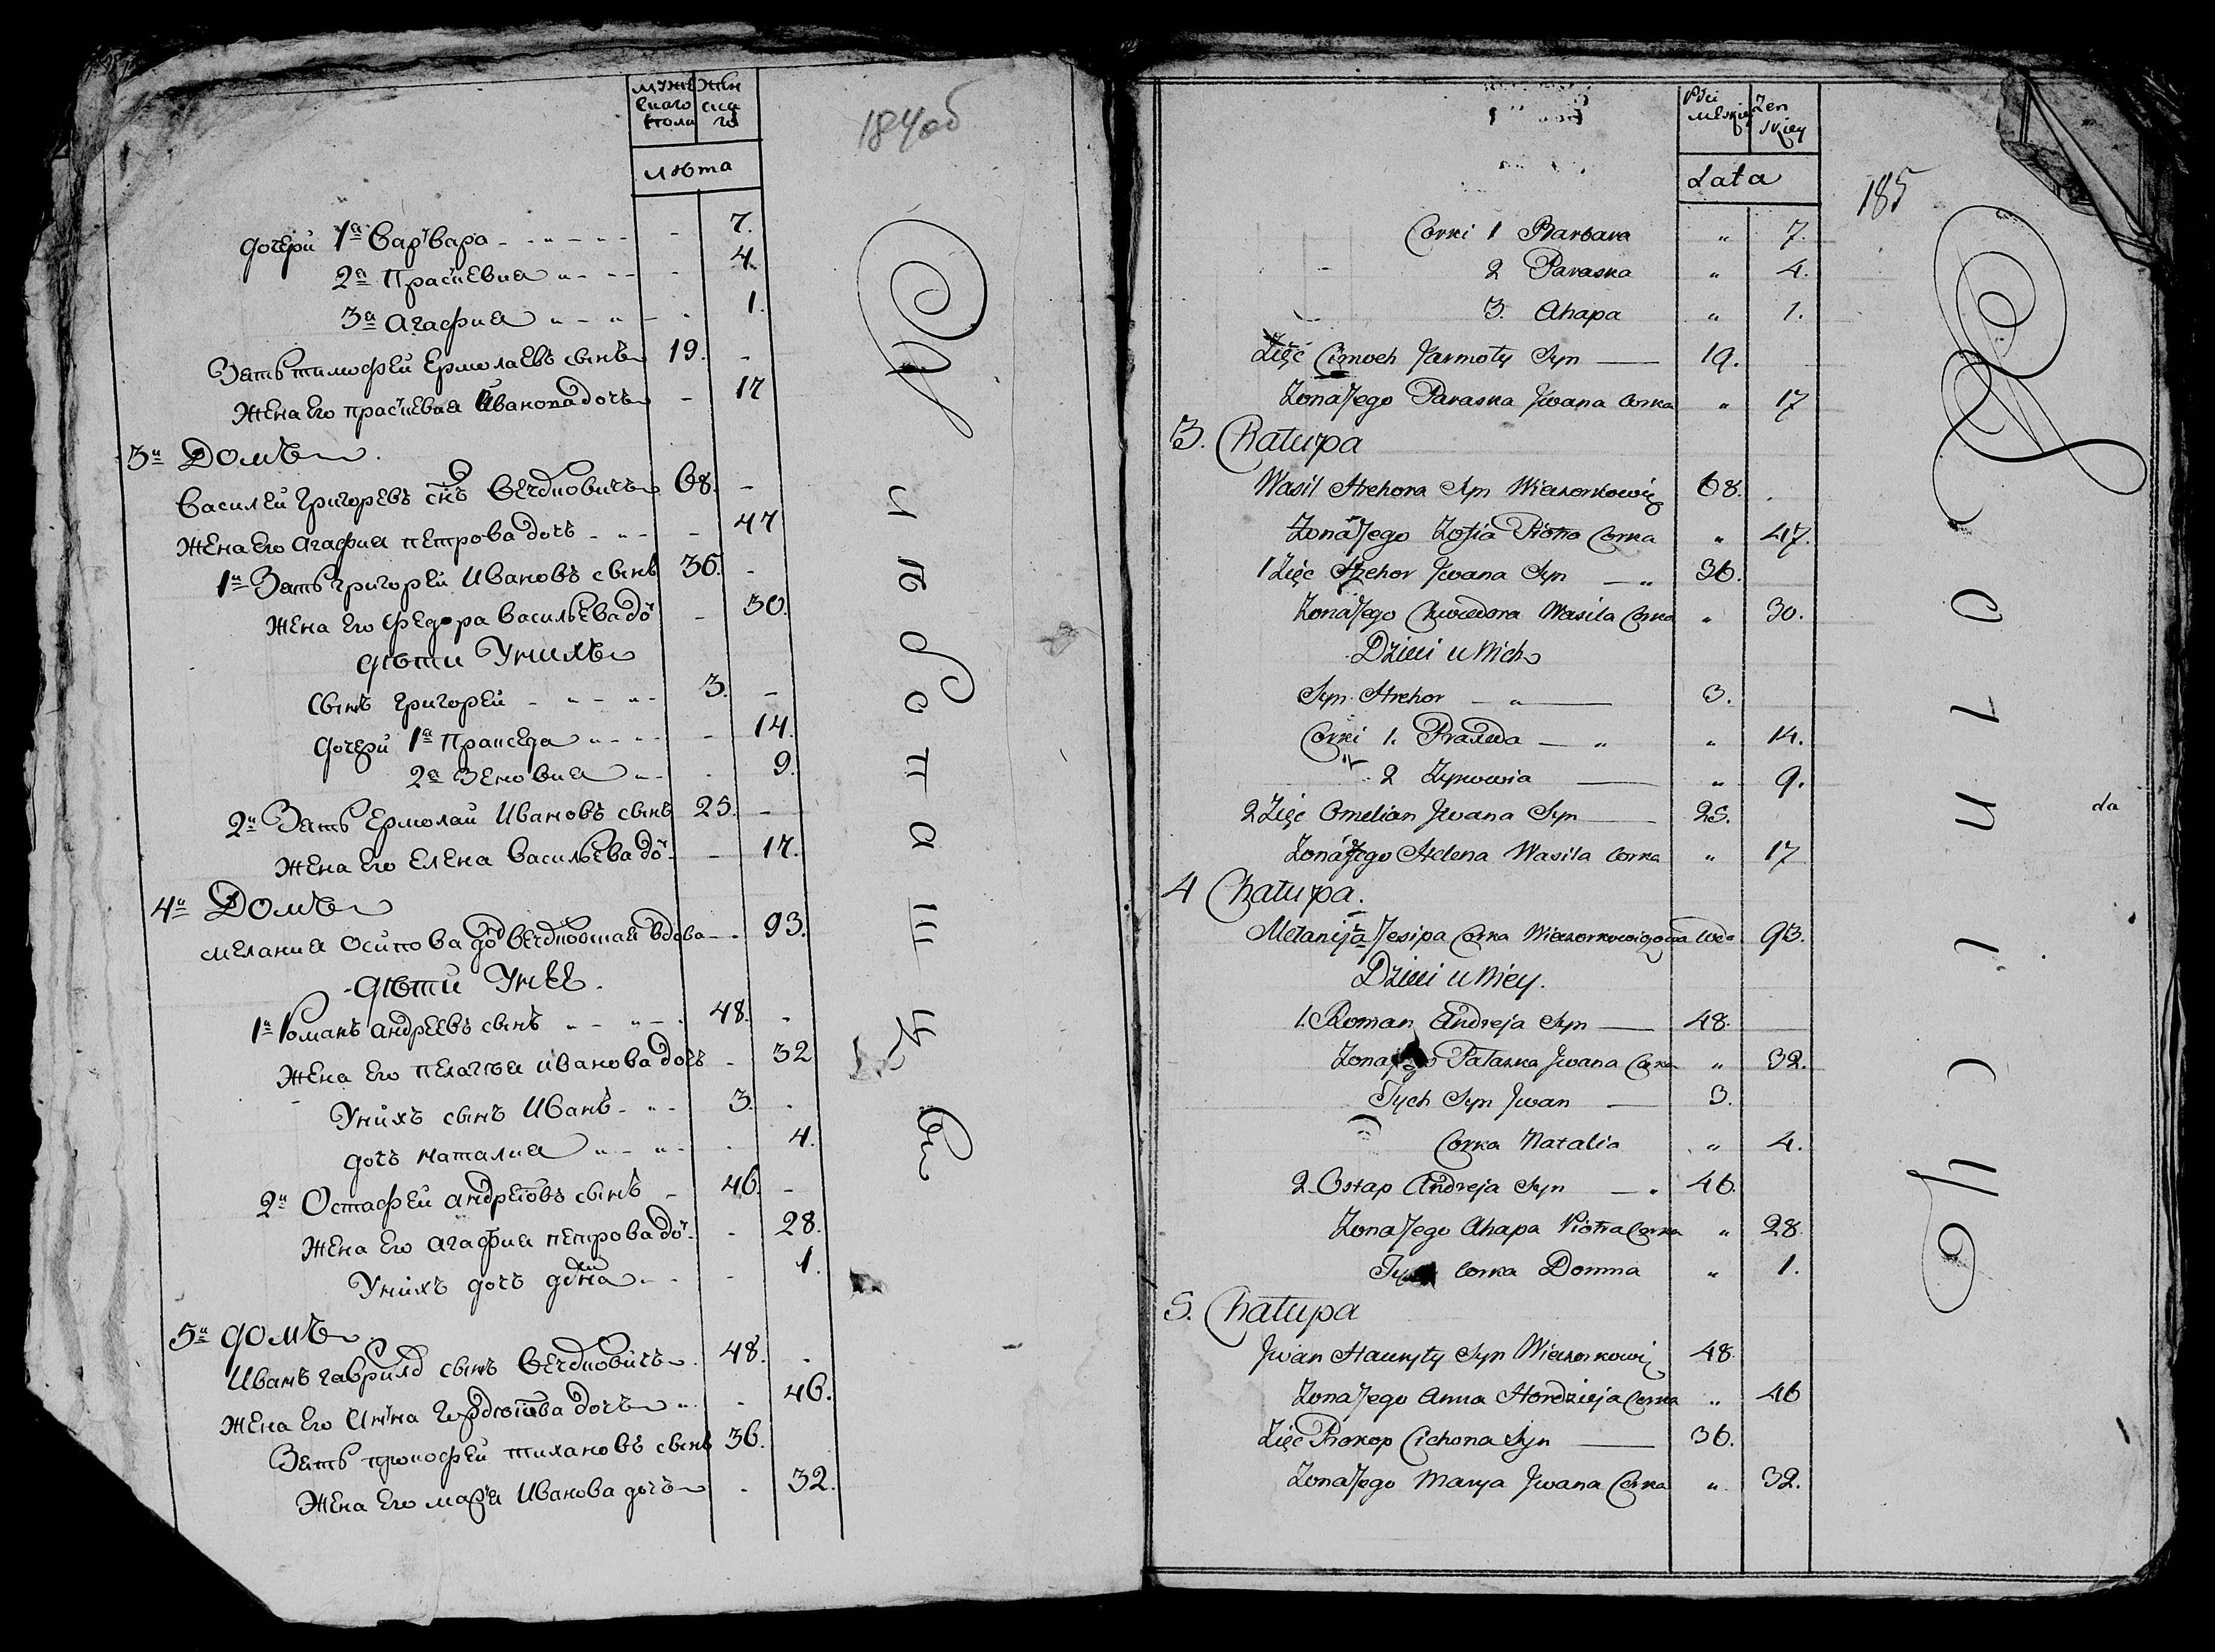 мужескаго пола
женскаго
лѣта
184об
дочери 1ѧ Варъвара 7.
2ѧ Праскевиа 4.
3ѧ Агафиа 1.
Зять тимофей Ермолаевъ сынъ 19.
Жена Его праскевиа Иванова дочь 17
3й Домъ
Василей Григоревъ снъ 68.
Жена Его Агафиа петрова дочь 47
1й Зять григорей Ивановъ сынъ 36.
Жена Его Федора Васильева до 30.
дѣти Унихъ
Сынъ григорей 3.
Дочери 1ѧ Пракседа 14.
2ѧ Зеновиа 9.
2й Зять Ермолай Ивановъ сынъ 25.
Жена Его Елена Васильева до 17.
4й Домъ
мелания Осипова вдова 93.
дѣти Унее.
1й Романъ андреевъ сынъ 48.
Жена Его пелагѣя иванова дочь 32
Унихъ сынъ Иванъ 3.
дочь наталиа 4.
2й Остафей андреевъ сынъ 46.
Жена Его агафиа петрова до 28.
Унихъ дочь 1.
5й домъ
Иванъ гаврила сынъ 48.
Жена Его Анна дочь 46.
Зять прокофей тихановъ сынъ 36.
Жена Его марѧ Иванова дочь 32.
Płci męzkiey
Zenskiey
Lata
185
Corki 1 Barbara " 7.
2 Paraska " 4.
3. Ahapa " 1.
Zięć Cimoch Jarmoły Syn 19.
Zona Jego Paraska Jwana Corka " 17
3. Chałupa
Wasil Hrehora Syn Wieczorkowicz 68.
Zona Jego Zofia Piotra Corka " 47.
1 Zięć Hrehor Jwana Syn 36.
Zona Jego Chwiedora Wasila Corka " 30.
Dzieci u Nich
Syn Hrehor 3.
Corki 1. Praxeda " 14.
2 Zynowia " 9.
2 Zięć Omelian Jwana Syn 25.
Zona Jego Helena Wasila Corka " 17
4 Chałupa.
Melanija Jesipa Corka Wieczorkowiczowa wdo 93.
Dzieci u Niey.
1. Roman Andreja Syn 48.
Zona Jego Pałaska Jwana Corka " 32.
Tych Syn Jwan 3.
Corka Natalia " 4.
2. Ostap Andreja Syn 46.
Zona Jego Ahapa Piotra Corka " 28.
Tych Corka Domna " 1.
5. Chałupa
Jwan Hauryły Syn Wieczorkowicz 48.
Zona Jego Anna Hordzieja Corka " 46
Zięć Prokop Cichona Syn 36.
Zona Jego Marya Jwana Corka " 32.
da